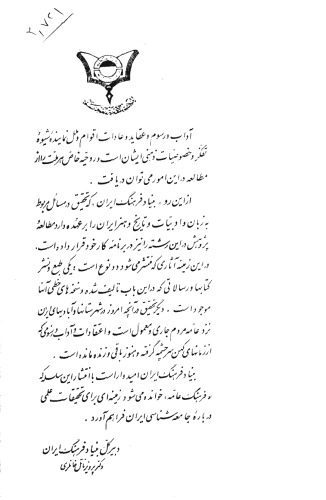 ۲٫۷۲۱
آداب و رسوم و عقاید و عادات اقوام و ملل نمایندهٔ شیوهٔ
تفکر و خصوصیات ذهنی ایشان است و روحیهٔ خاص هر ملت را از
مطالعه در این امور می توان دریافت .
از این رو ، بنیاد فرهنگ ایران ، که تحقیق در مسائل مربوط
به زبان و ادبیات و تاریخ و هنر ایران را بر عهده دارد مطالعه
و پژوهش در این رشته را نیز در برنامهٔ کار خود قرار داده است .
در این زمینه آثاری که منتشر می شود دو نوع است : یکی طبع و نشر
کتابها و رسالاتی که در این باب تألیف شده و نسخه های خطی آنها
موجود است . دیگر تحقیق در آنچه امروز در شهرستانها و آبادیهای ایران
نزد عامهٔ مردم جاری و معمول است و اعتقادات و آداب بومی که
از زمانهای کهن سرچشمه گرفته و هنوز باقی و زنده مانده است .
بنیاد فرهنگ ایران امیدوار است با انتشار این سلسله که
« فرهنگ عامه » خوانده می شود زمینه ای برای تحقیقات علمی
دربارهٔ جامعه شناسی ایران فراهم آورد .
دبیر کل بنیاد فرهنگ ایران
دکتر پرویز ناتل خانلری